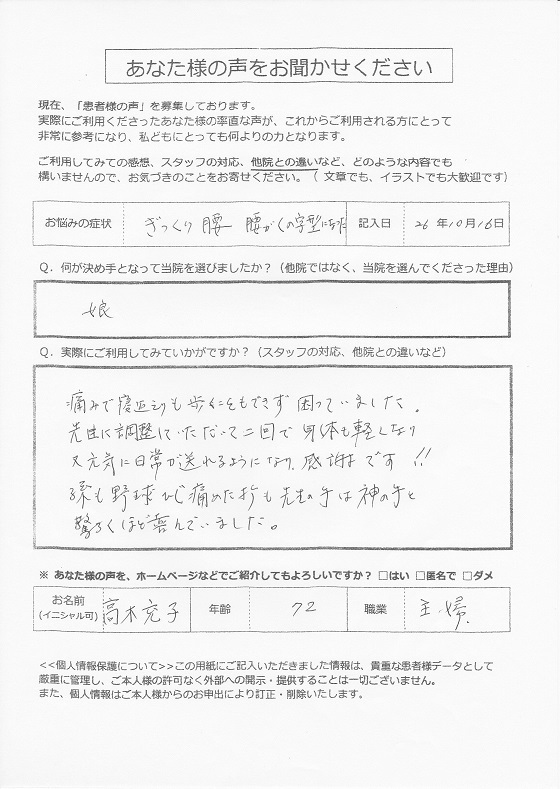 あなた様の声をお聞かせください
現在、「患者様の声」を募集しております。
実際にご利用くださったあなた様の率直な声が、これからご利用される方にとって
非常に参考になり、私どもにとっても何よりの力となります。
ご利用してみての感想、スタッフの対応、他院との違いなど、どのような内容でも
構いませんので、お気づきのことをお寄せください。（ 文章でも、イラストでも大歓迎です）
お悩みの症状 ぎっくり腰 腰がくの字型になった 記入日 26 年 10 月 16 日
Ｑ．何が決め手となって当院を選びましたか？（他院ではなく、当院を選んでくださった理由）
娘
Ｑ．実際にご利用してみていかがですか？（スタッフの対応、他院との違いなど）
痛みで寝返りも歩くこともできず 困っていました。
先生に調整していただいて二回で 身体も軽くなり
又元気に日常が送れるようになり、感謝です!!
孫も野球ひじ痛めた折も先生の手は神の手と
驚ろくほど喜んでいました。
※ あなた様の声を、ホームページなどでご紹介してもよろしいですか？ □はい □匿名で □ダメ
お名前
(イニシャル可) 高木充子 年齢 72 職業 主婦
<<個人情報保護について>>この用紙にご記入いただきました情報は、貴重な患者様データとして
厳重に管理し、ご本人様の許可なく外部への開示・提供することは一切ございません。
また、個人情報はご本人様からのお申出により訂正・削除いたします。